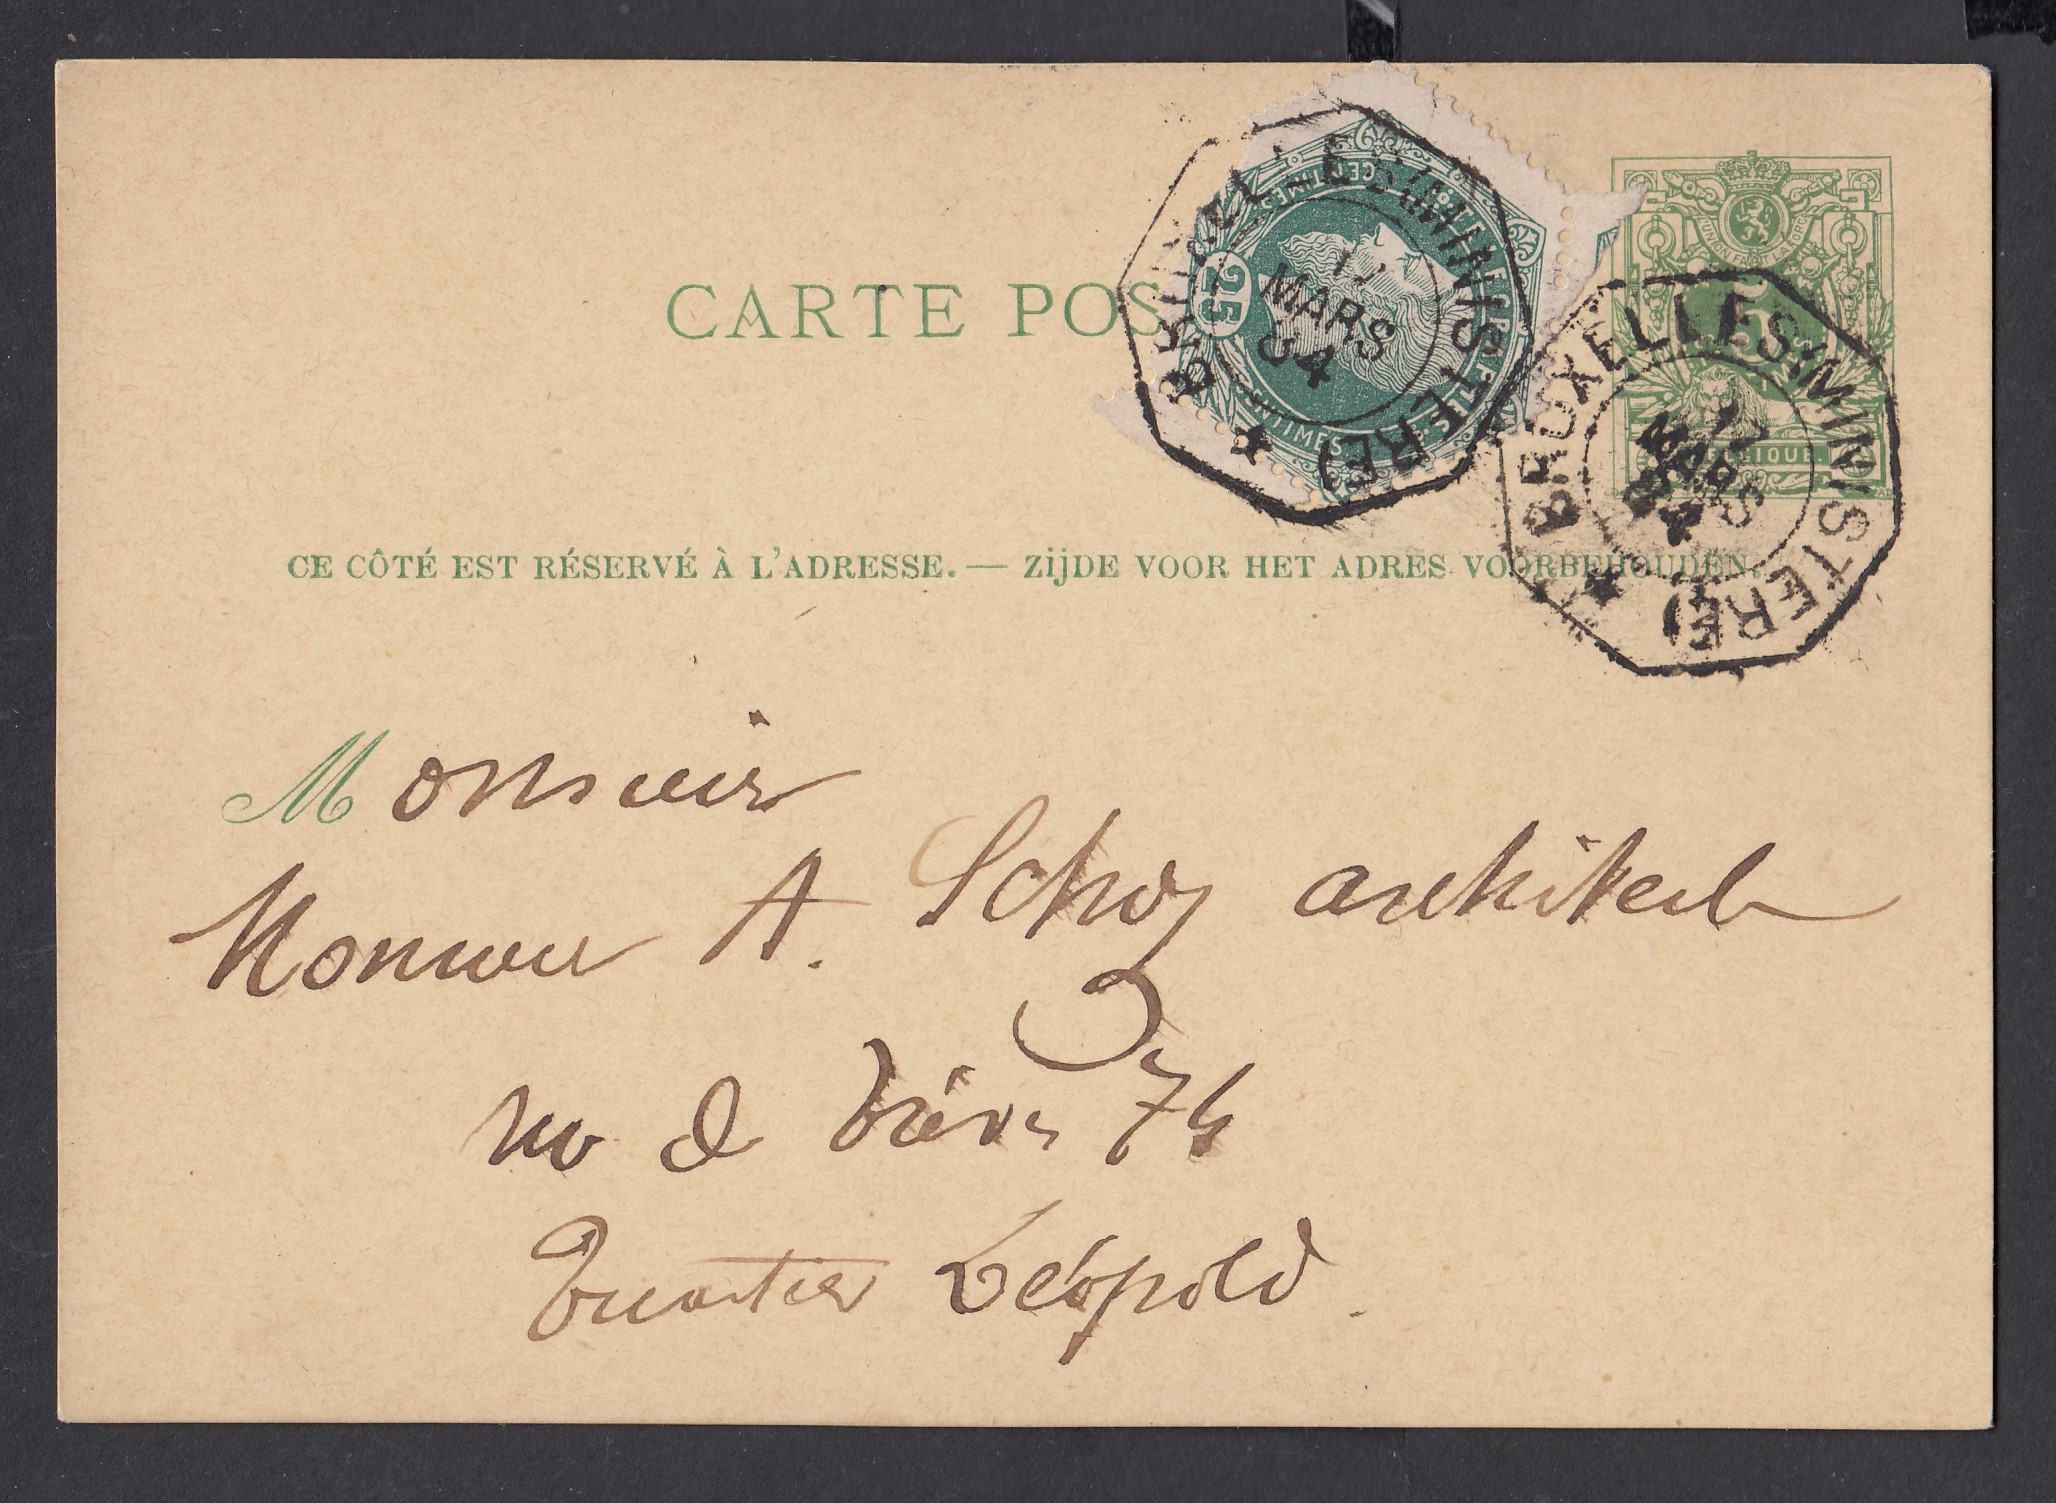 CARTE POS
25
CENTIMES
BRUXELLES (MINISTERE)
MARS
84
UNION FAIT LA FORCE
5
BELGIQUE.
BRUXELLES (MINISTERE)
12
MARS
84
CE CÔTÉ EST RÉSERVÉ À L'ADRESSE. — ZIJDE VOOR HET ADRES VOORBEHOUDEN.
Monsieur
Monsieur A. Schoy architecte
rue de Trèves 74
Quartier Léopold.